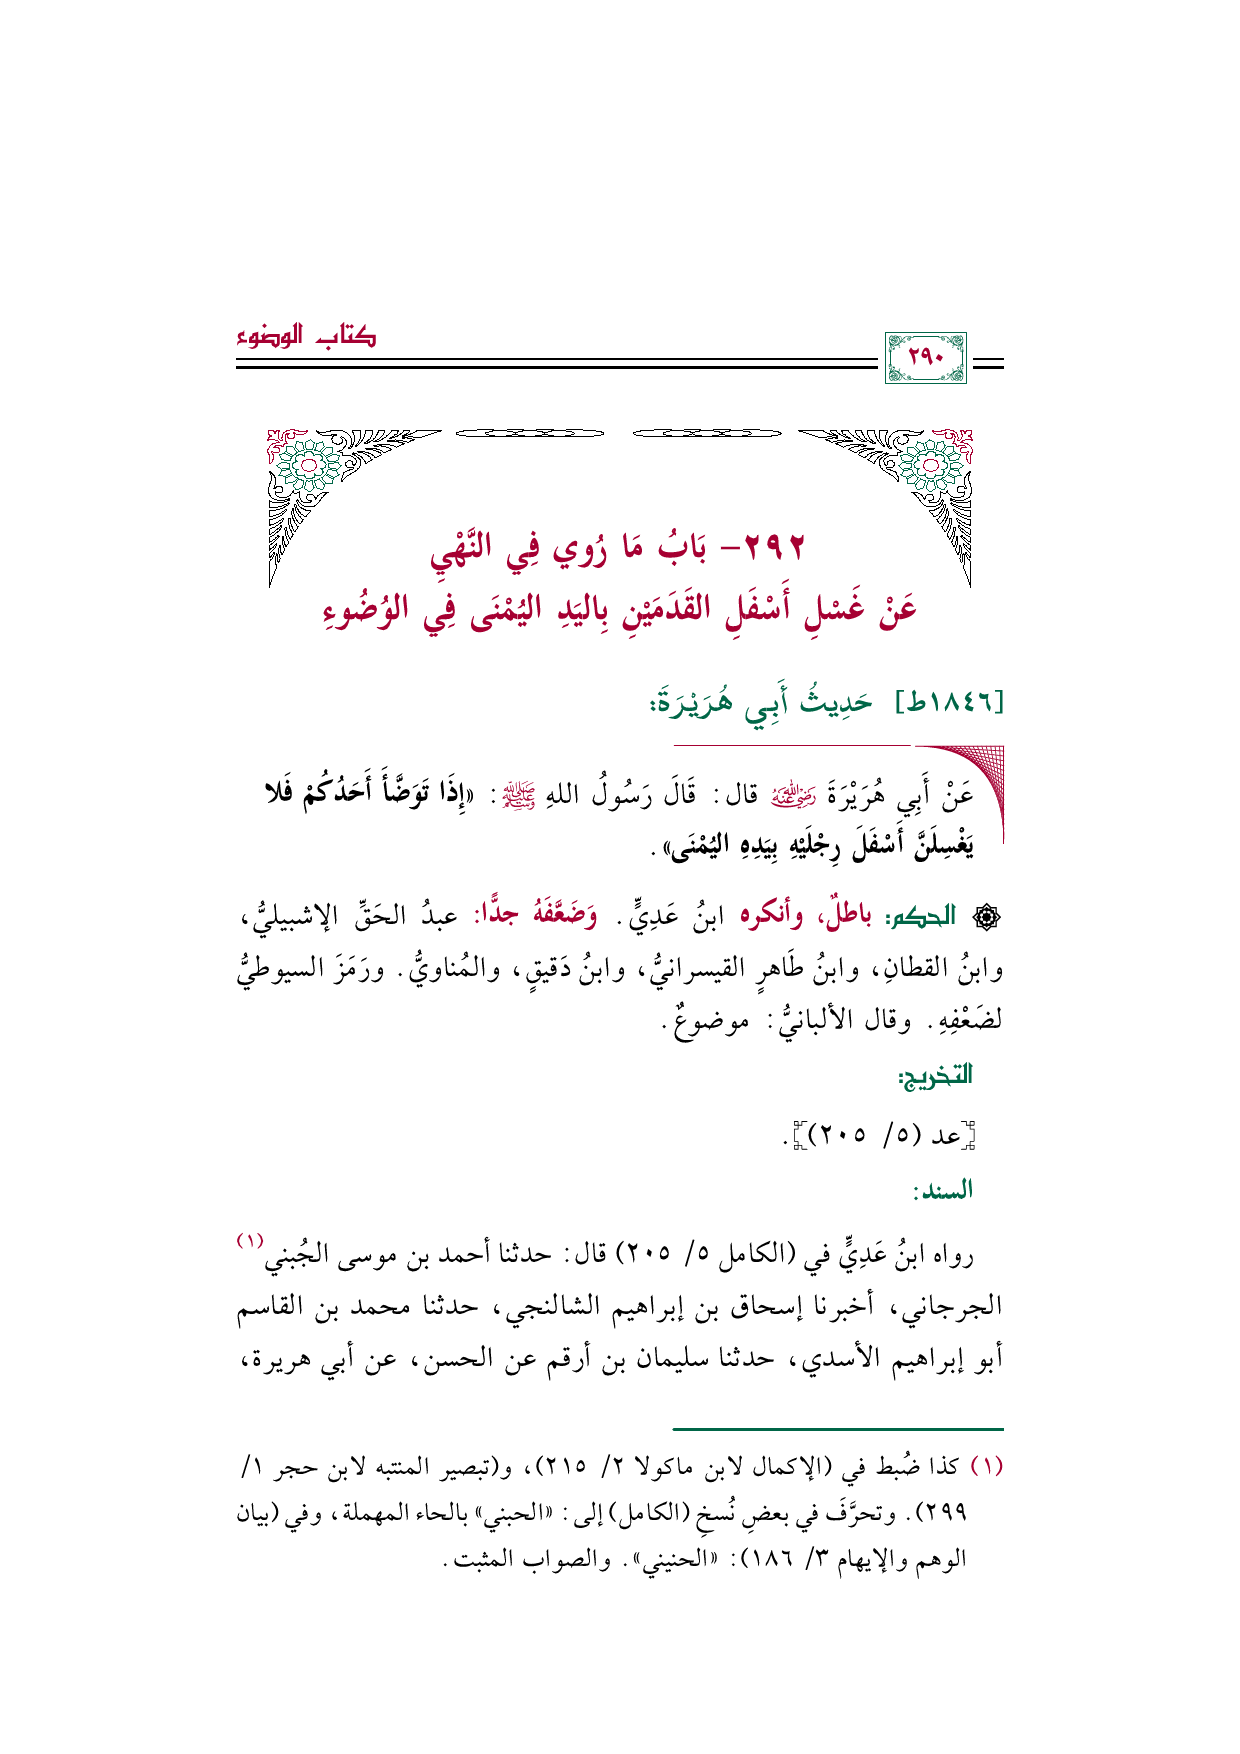 كتاب الوضوء
٢٩٠
٢٩٢- بَابُ مَا رُوي فِي النَّهْيِ
عَنْ غَسْلِ أَسْفَلِ القَدَمَيْنِ بِاليَدِ اليُمْنَى فِي الوُضُوءِ
[١٨٤٦ط] حَدِيثُ أَبِي هُرَيْرَةَ:
عَنْ أَبِي هُرَيْرَةَ رضي الله عنه قال: قَالَ رَسُولُ اللهِ ﷺ: «إِذَا تَوَضَّأَ أَحَدُكُمْ فَلا
يَغْسِلَنَّ أَسْفَلَ رِجْلَيْهِ بِيَدِهِ اليُمْنَى».
الحكم: باطلٌ، وأنكره ابنُ عَدِيٍّ. وَضَعَّفَهُ جدًّا: عبدُ الحَقِّ الإشبيليُّ،
وابنُ القطانِ، وابنُ طَاهرٍ القيسرانيُّ، وابنُ دَقيقٍ، والمُناويُّ. ورَمَزَ السيوطيُّ
لضَعْفِهِ. وقال الألبانيُّ: موضوعٌ.
التخريج:
[عد (٥/ ٢٠٥)].
السند:
رواه ابنُ عَدِيٍّ في (الكامل ٥/ ٢٠٥) قال: حدثنا أحمد بن موسى الجُبني(١)
الجرجاني، أخبرنا إسحاق بن إبراهيم الشالنجي، حدثنا محمد بن القاسم
أبو إبراهيم الأسدي، حدثنا سليمان بن أرقم عن الحسن، عن أبي هريرة،
(١) كذا ضُبط في (الإكمال لابن ماكولا ٢/ ٢١٥)، و(تبصير المنتبه لابن حجر ١/
٢٩٩). وتحرَّفَ في بعضِ نُسخِ (الكامل) إلى: «الحبني» بالحاء المهملة، وفي (بيان
الوهم والإيهام ٣/ ١٨٦): «الحنيني». والصواب المثبت.